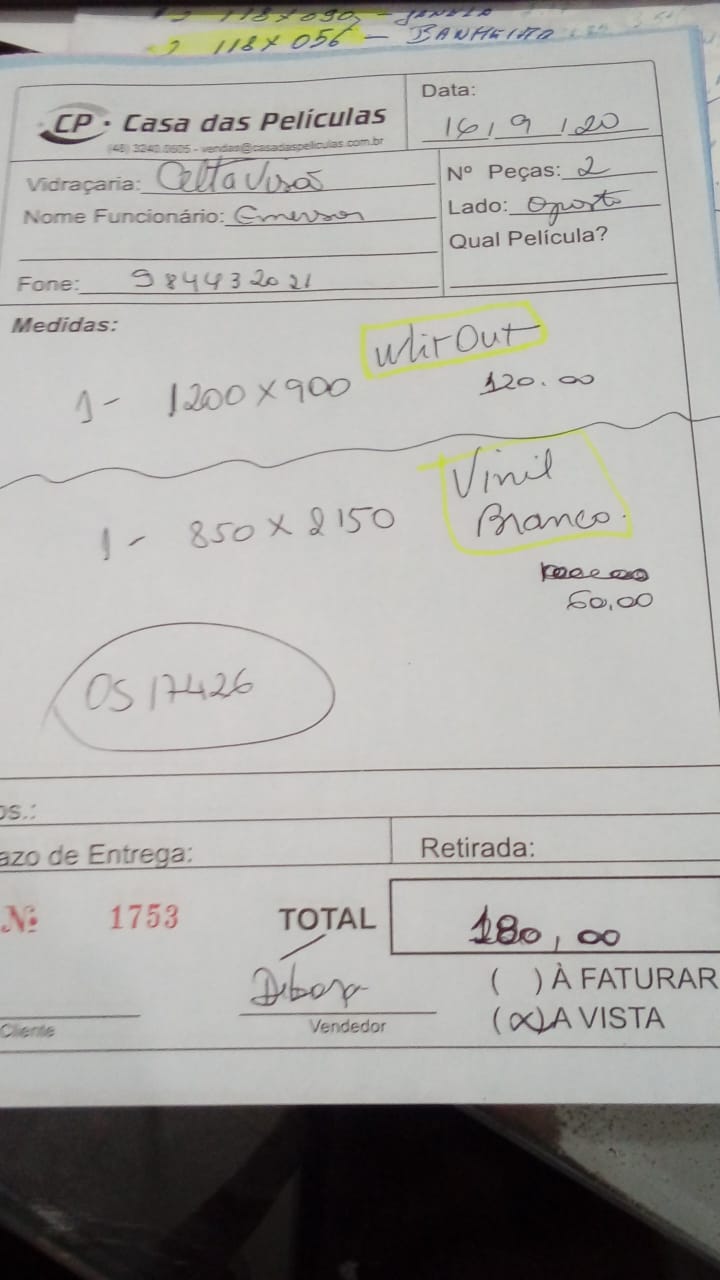 118 X 090 - JANELA
2 118 X 056 - BANHEIRO
CP · Casa das Películas
Data:
16, 9, 20
(48) 3240.0605 - vendas@casadaspeliculas.com.br
Vidraçaria: Celta Visão
Nº Peças: 2
Nome Funcionário: Emerson
Lado: Oposto
Qual Película?
Fone: 984432021
Medidas:
WhitOut
1 - 1200 X 900
120.00
Vinil
1 - 850 X 2150
Branco.
60,00
OS 17426
os.:
azo de Entrega:
Retirada:
Nº 1753
TOTAL 180,00
Debora
( ) À FATURAR
Cliente
Vendedor
(X) A VISTA